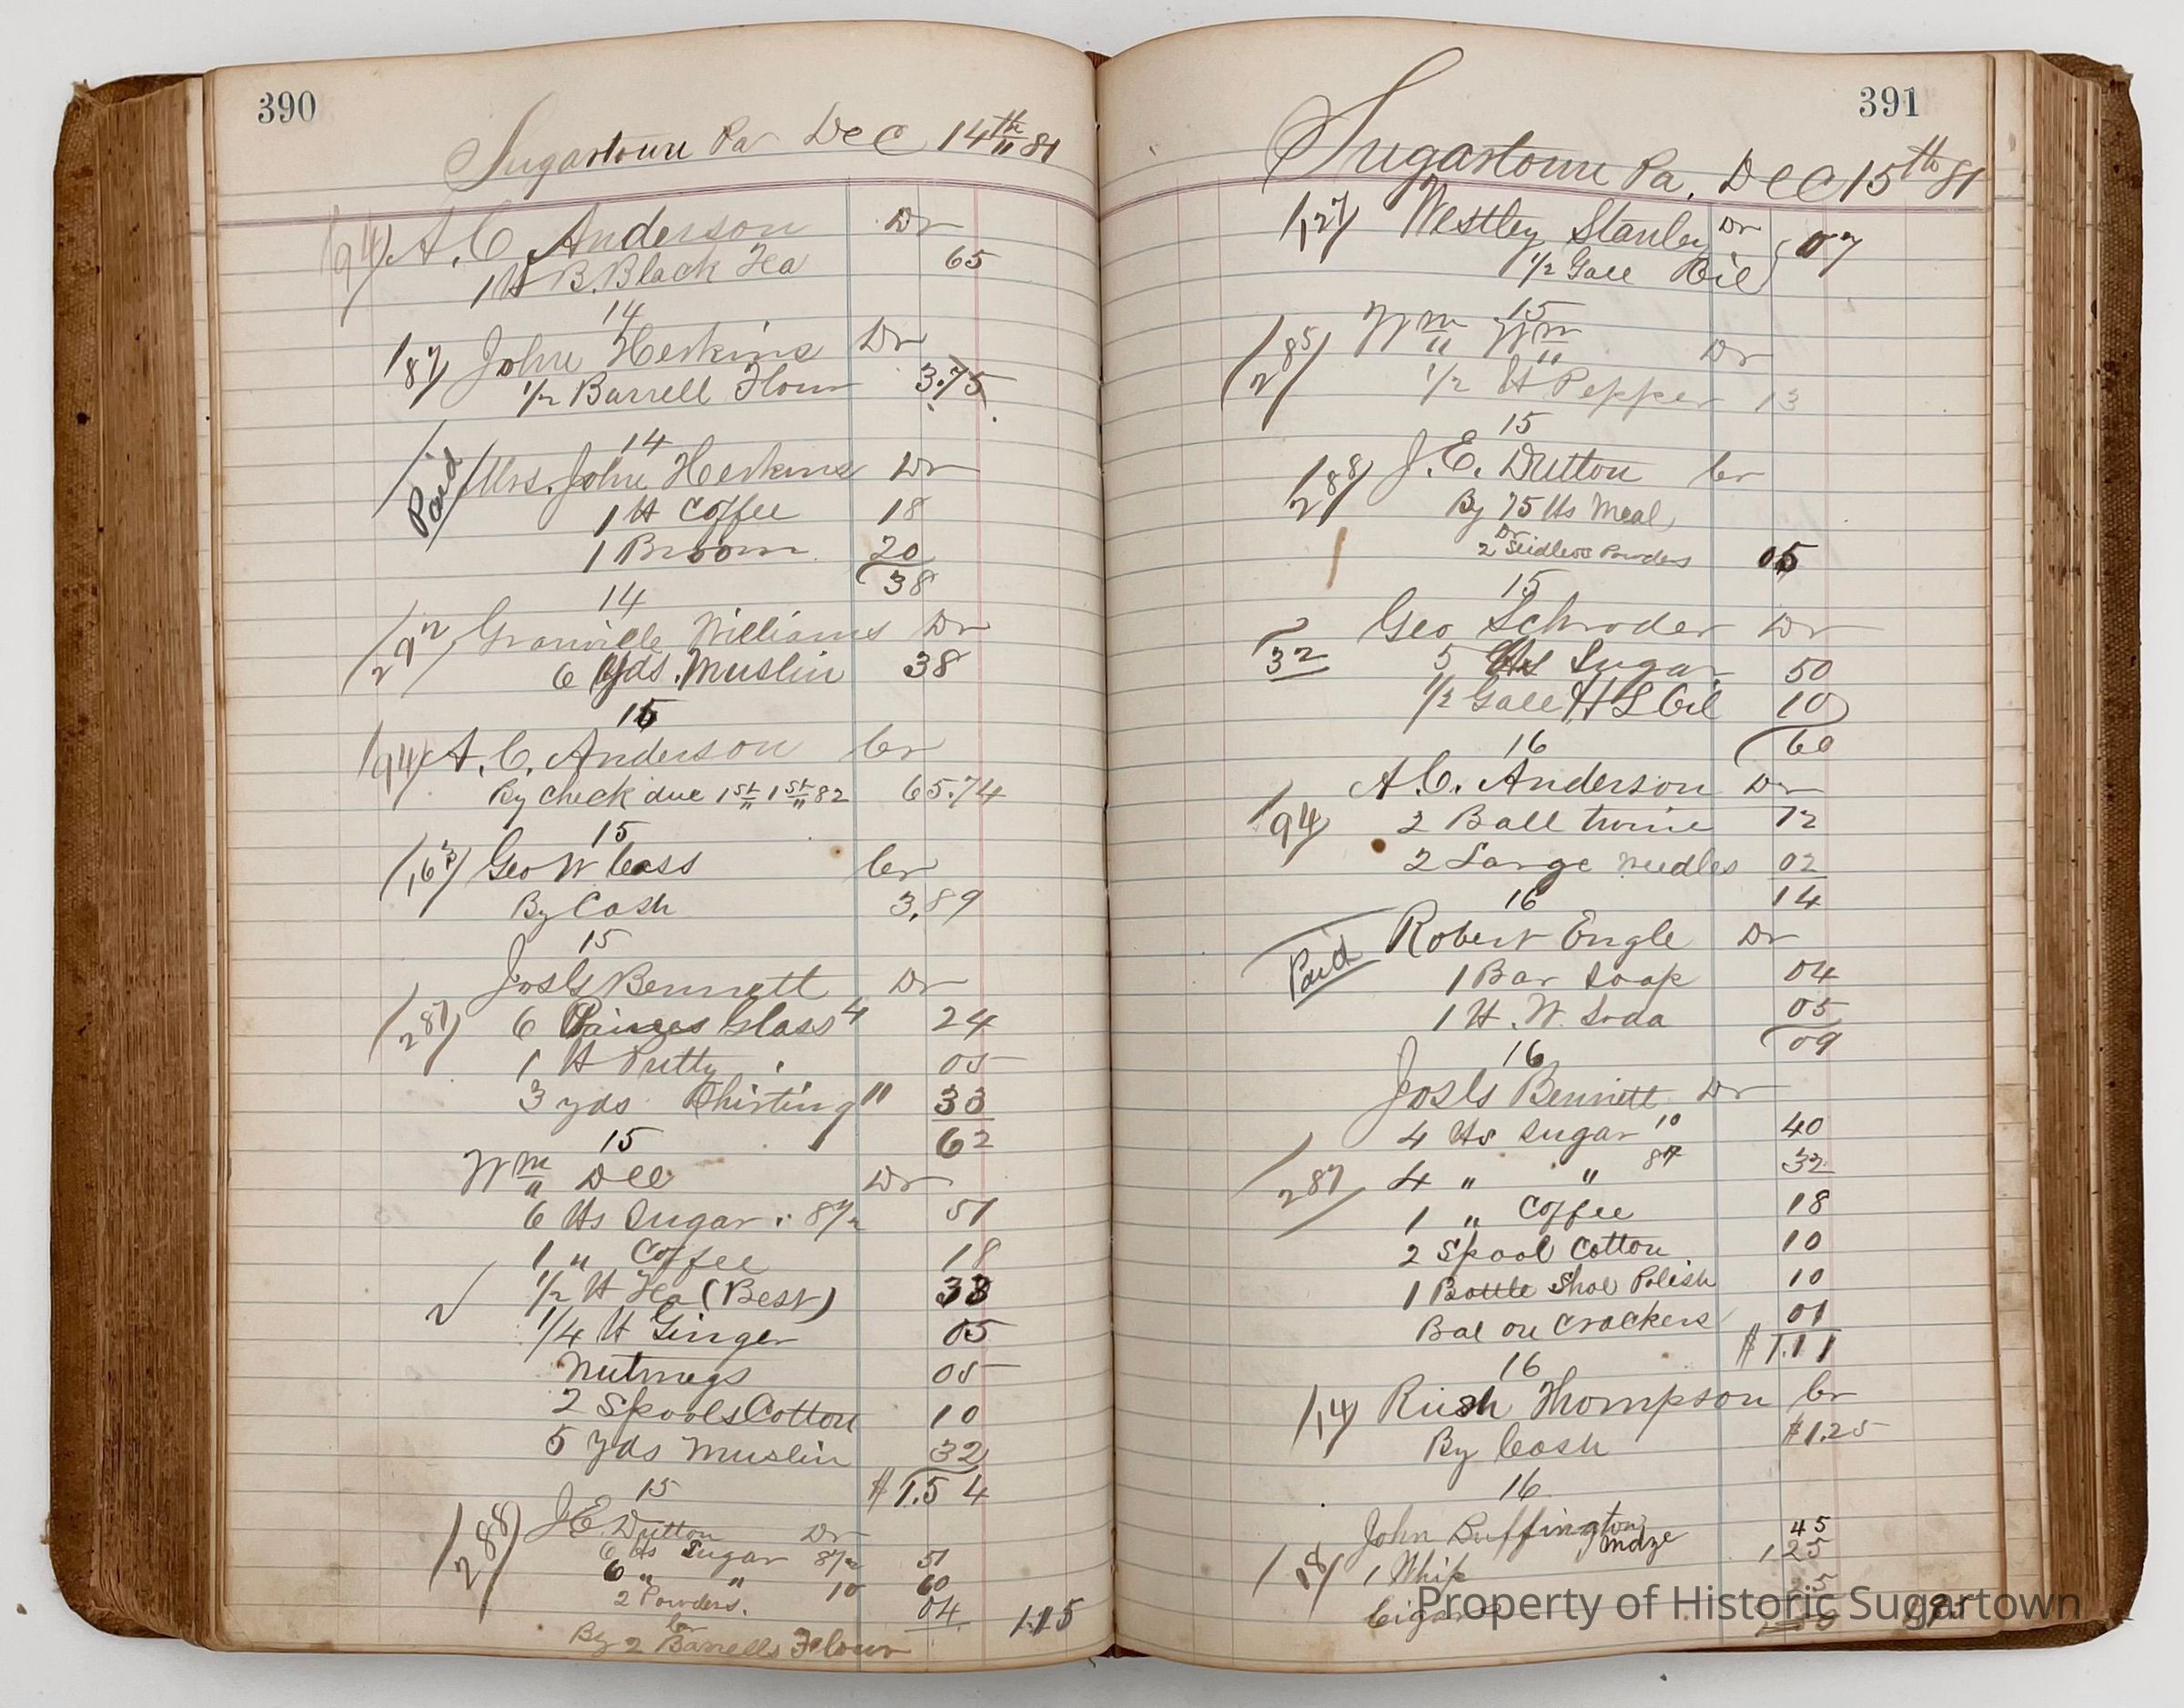 390
Sugartown Pa Dec 14th 81
194 A. C. Anderson Dr
1 lb B. Black Tea 65
14
187 John Herkins Dr
1/2 Barrell Flour 3.75
14
Paid Mrs. John Herkins Dr
1 lb Coffee 18
1 Broom 20
38
14
Granville Williams Dr
6 yds. Muslin 38
15
194 A. C. Anderson Cr
By check due 1st 1st 82 65.74
15
163 Geo W Cass Cr
By Cash 3,89
15
Jos G Bennett Dr
287 6 Glass 4 24
1 lb Putty 05
3 yds Shirting 11 33
62
15
Wm Dee Dr
6 lbs Sugar 8 1/2 51
1 " Coffee 18
1/2 lb Tea (Best) 33
1/4 lb Ginger 05
Nutmegs 05
2 Spools Cotton 10
5 yds Muslin 32
$1.54
15
288 J. E. Dutton Dr
6 lbs Sugar 8 1/2 51
6 " " 10 60
2 Powders. 04 1.15
Cr
By 2 Barrells Flour
391
Sugartown Pa. Dec 15th 81
127 Westley Stanley Dr
1/2 Gall Oil 07
15
285 Wm Wm Dr
1/2 lb Pepper 13
15
288 J. E. Dutton Cr
By 75 lbs Meal
Dr
2 Seidless Powders 05
15
Geo Schroder Dr
32 5 lbs Sugar 50
1/2 Gall H L Oil 10
60
16
A. C. Anderson Dr
194 2 Ball twine 12
2 Large needles 02
14
16
Paid Robert Engle Dr
1 Bar Soap 04
1 lb. W. Soda 05
09
16
Jos G Bennett Dr
4 lbs Sugar 10 40
287 4 " " 8 32
1 " Coffee 18
2 Spool Cotton 10
1 Bottle Shoe Polish 10
Bal on Crackers 01
$1.11
16
114 Rush Thompson Cr
By Cash $1.25
16
John Buffington
Mdze 45
181 1 Whip 1 25
Cigars
Property of Historic Sugartown